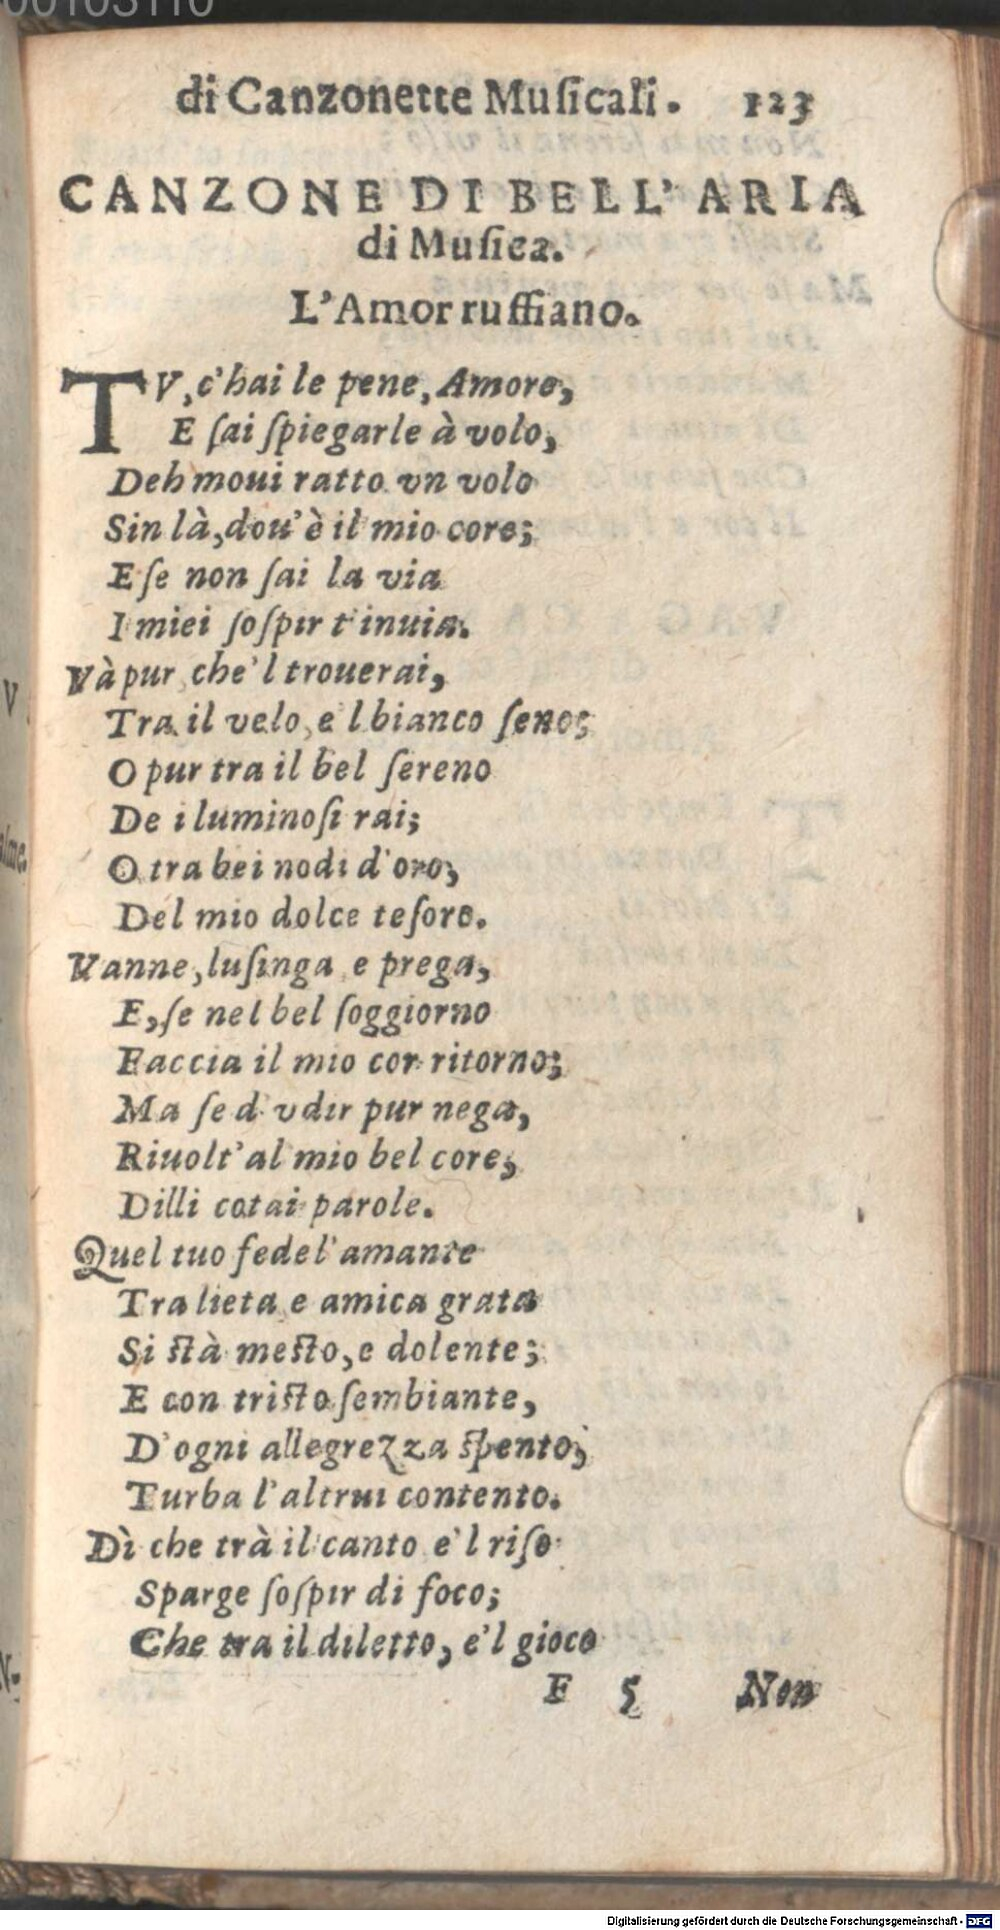 00103110
di Canzonette Muſicali. 123
CANZONE DI BELL' ARIA
di Muſica.
L'Amor ruffiano.
TV, c'hai le pene, Amore,
E ſai ſpiegarle à volo,
Deh moui ratto vn volo
Sin là, dou' è il mio core;
E ſe non ſai la via
I miei ſoſpir t'inuia.
Và pur che'l trouerai,
Tra il velo, e'l bianco ſeno;
O pur tra il bel ſereno
De i luminoſi rai;
O tra bei nodi d'oro,
Del mio dolce teſoro.
Vanne, luſinga e prega,
E, ſe nel bel ſoggiorno
Faccia il mio cor ritorno;
Ma ſe d'vdir pur nega,
Riuolt' al mio bel core,
Dilli cotai parole.
Quel tuo fedel' amante
Tra lieta e amica grata
Si ſtà meſto, e dolente;
E con triſto ſembiante,
D'ogni allegrezza ſpento,
Turba l'altrui contento.
Dì che trà il canto e'l riſo
Sparge ſoſpir di foco;
Che tra il diletto, e'l gioco
F 5 Non
Digitalisierung gefördert durch die Deutsche Forschungsgemeinschaft - DFG